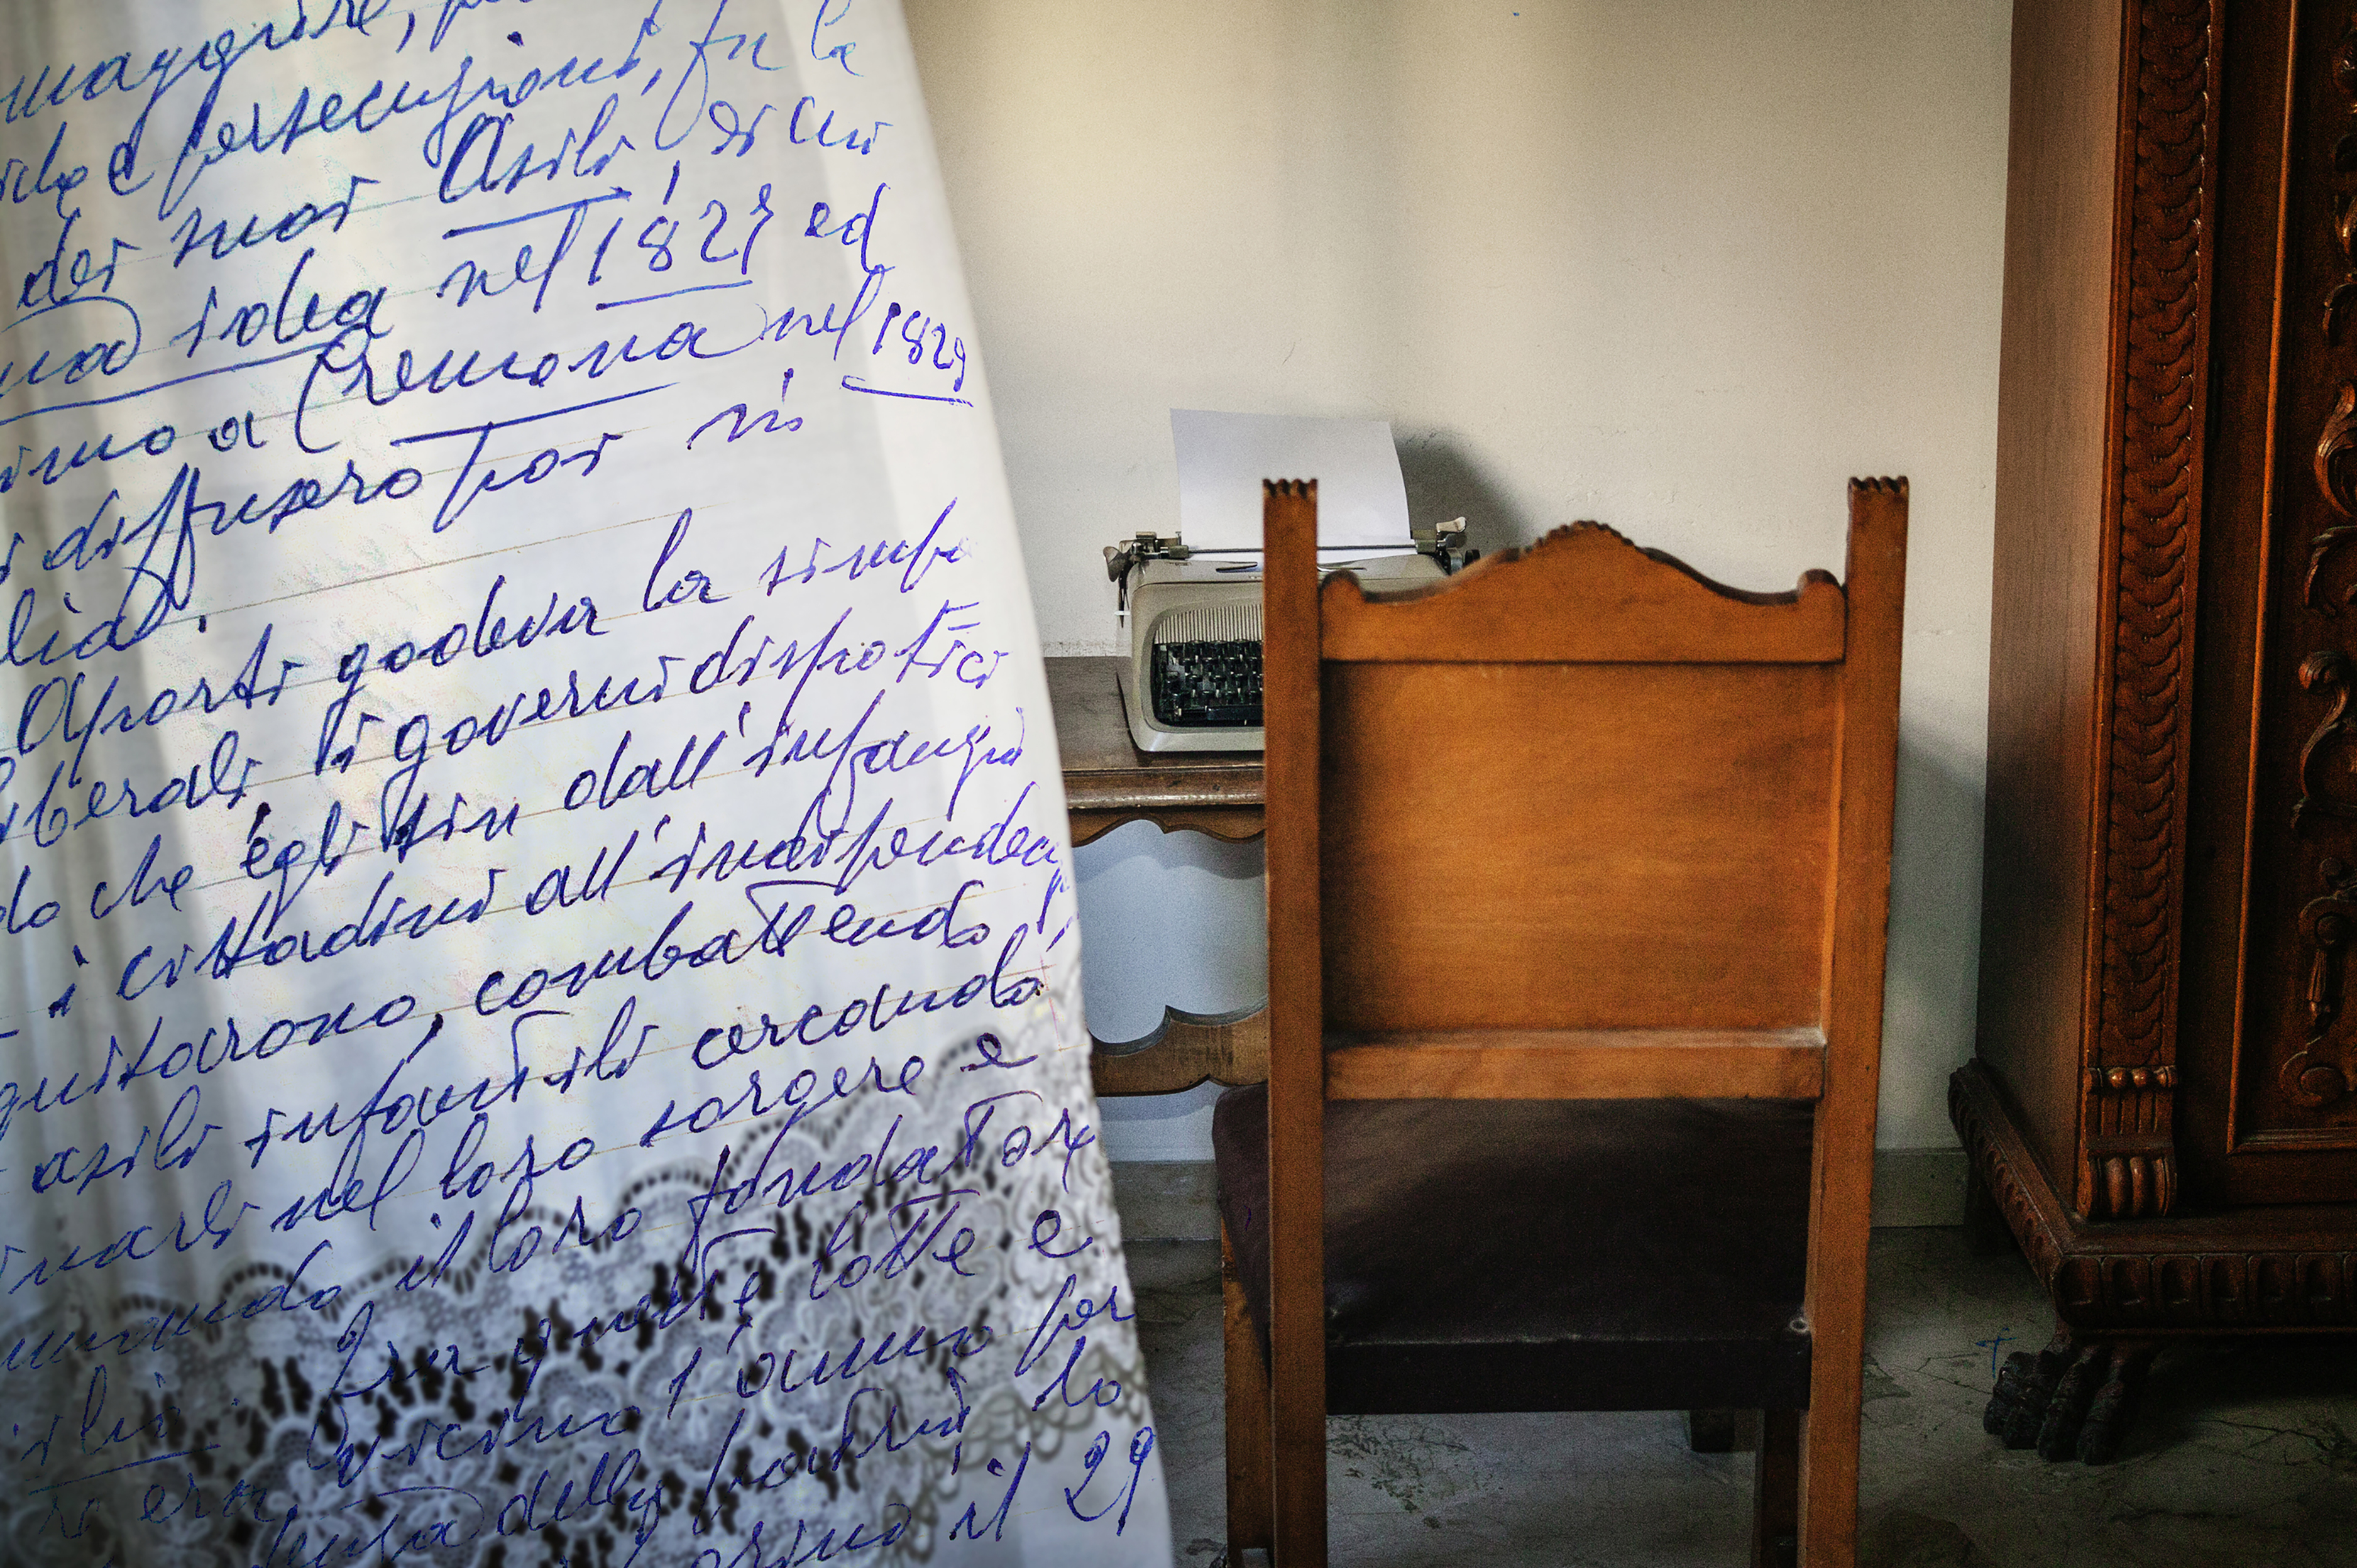 maggiore,
e persecuzioni, fu la
dei suoi Asili, di cui
idea nel 1827 ed
a Cremona nel 1829
si diffusero poi in
Aporti godeva la simpa
liberali i governi dispotici
do che egli sin dall'infanzia
i cittadini all'indipenden
guitarono, combattendo
asili infantili cercando
nel loro sorgere e
il loro fondatore
Fra queste lotte e
era vicino l'anno per
della patria lo
il 29